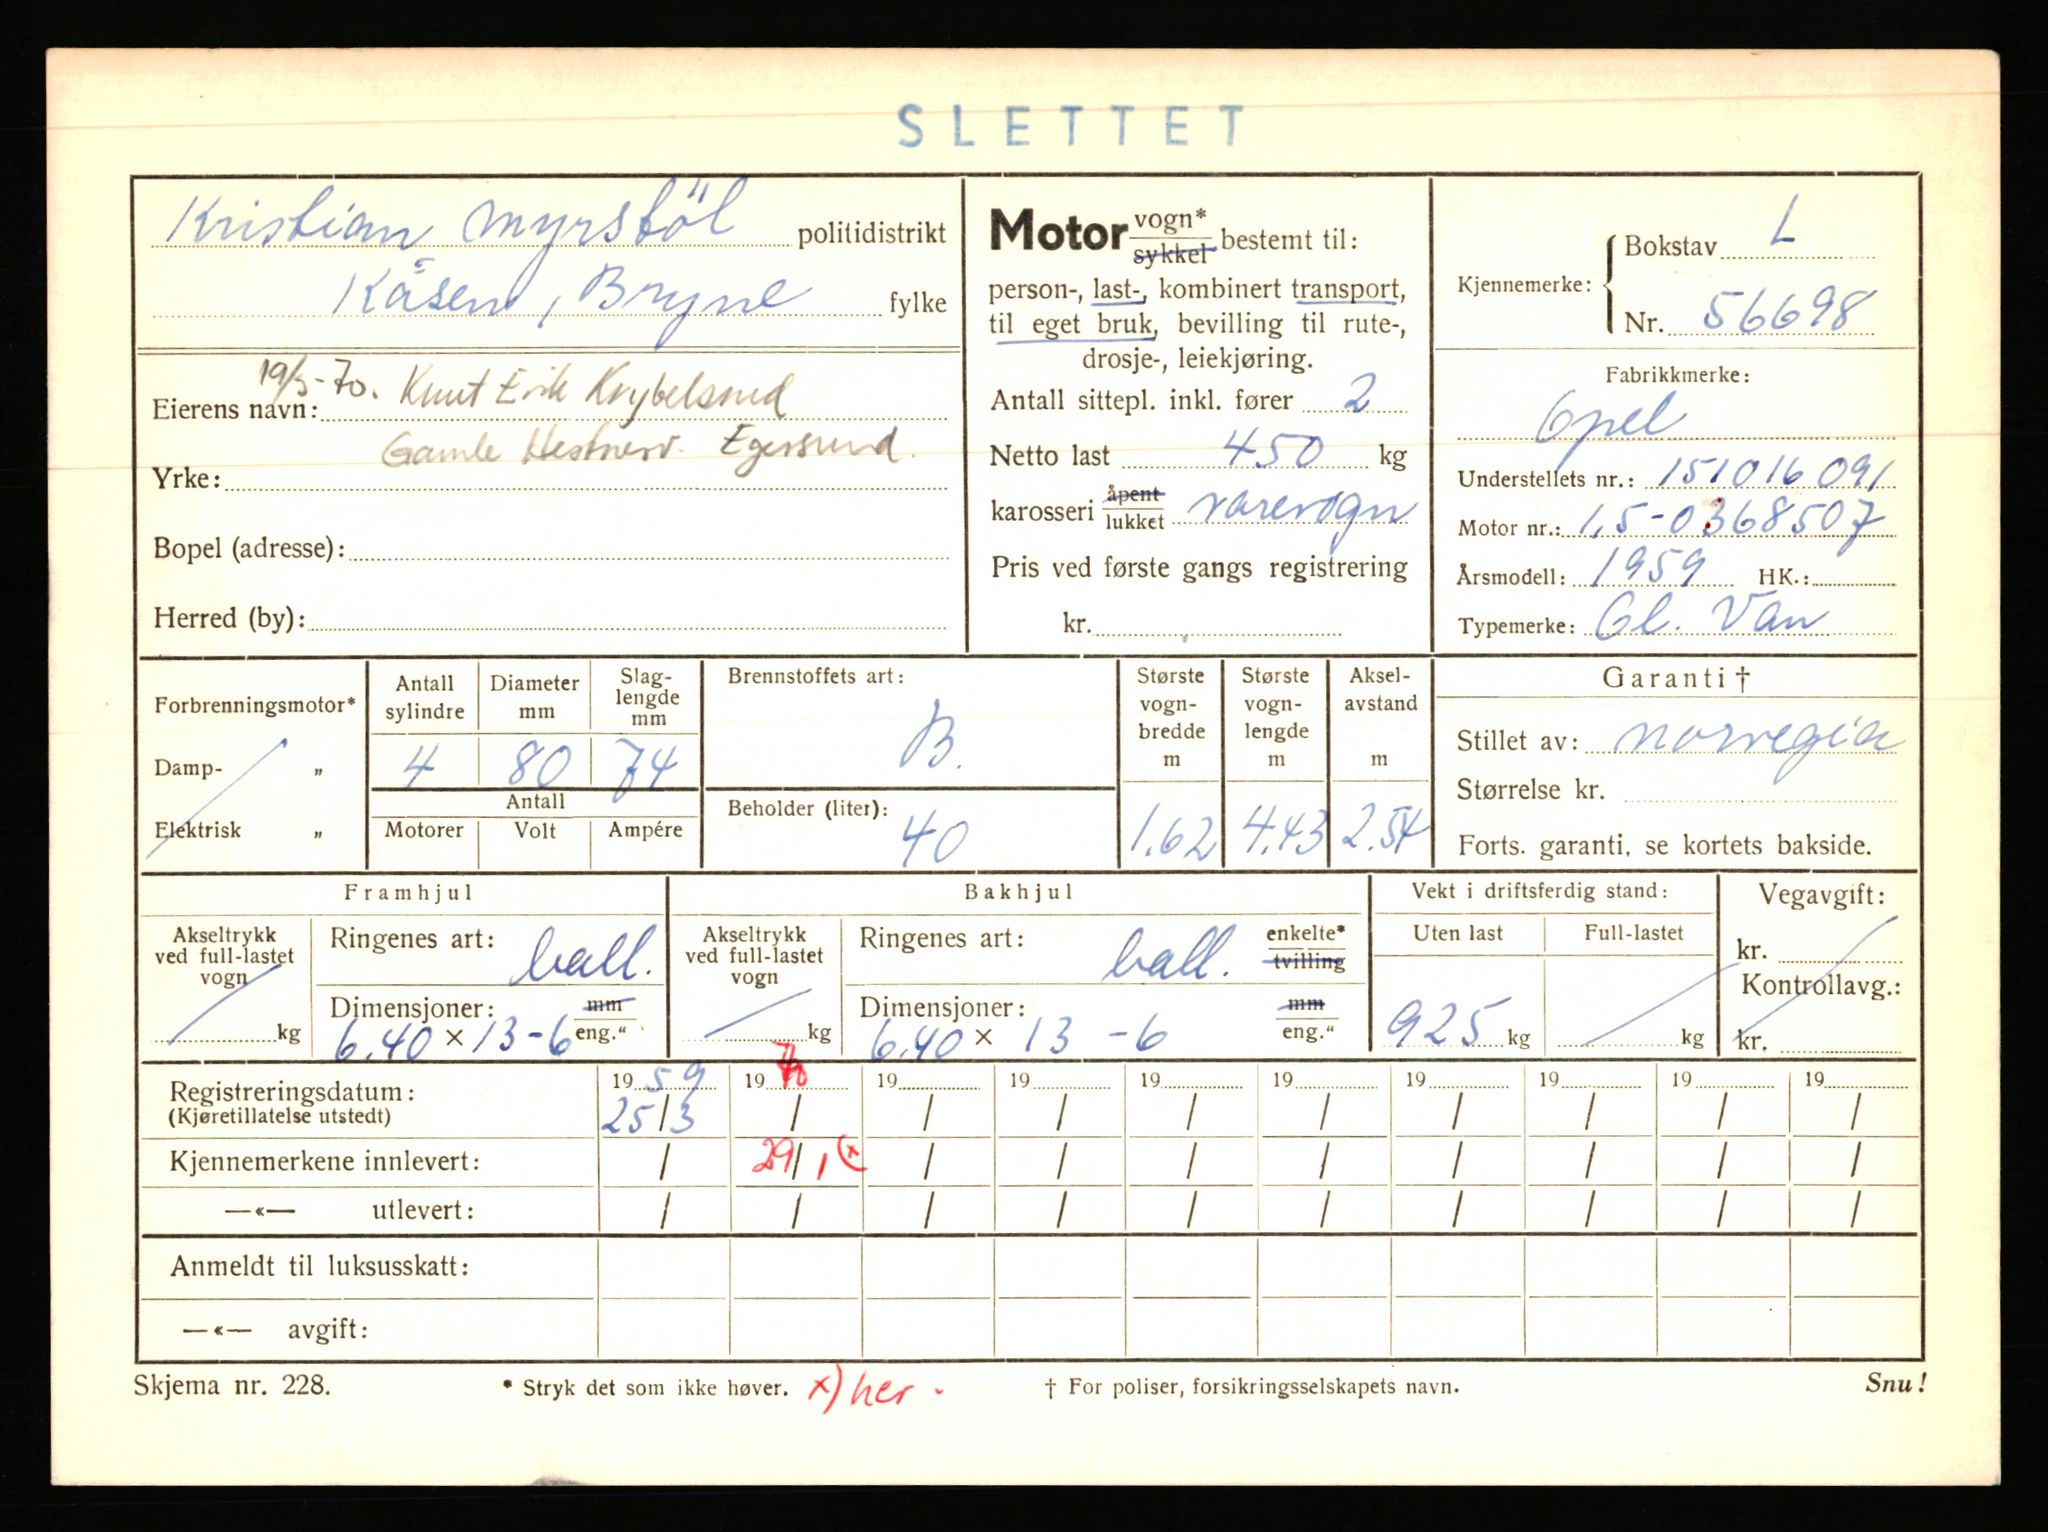 SLETTET
Kristian Myrstöl politidistrikt
Kåsen, Bryne fylke
19/3-70. Knut Erik
Eierens navn:
Gamle Egersund.
Yrke:
Bopel (adresse):
Herred (by):
Motor vogn* / sykkel bestemt til:
person-, last-, kombinert transport,
til eget bruk, bevilling til rute-,
drosje-, leiekjøring.
Antall sittepl. inkl. fører 2
Netto last 450 kg
karosseri åpent / lukket varevogn
Pris ved første gangs registrering
kr.
Kjennemerke: Bokstav L
Nr. 56698
Fabrikkmerke:
Opel
Understellets nr.: 151016091
Motor nr.: 1,5-0368507
Årsmodell: 1959 HK.:
Typemerke: Ol. Van
Forbrenningsmotor*
Damp- „
Elektrisk „
Antall sylindre Diameter mm Slag-lengde mm
4 80 74
Antall
Motorer Volt Ampére
Brennstoffets art:
B.
Beholder (liter):
40
Største vogn-bredde m Største vogn-lengde m Aksel-avstand m
1.62 4.43 2.54
Garanti †
Stillet av: Norvegia
Størrelse kr.
Forts. garanti, se kortets bakside.
Framhjul
Akseltrykk ved full-lastet vogn
kg
Ringenes art: ball.
Dimensjoner: mm / eng.“
6.40 × 13-6
Bakhjul
Akseltrykk ved full-lastet vogn
kg
Ringenes art: ball. enkelte* / tvilling
Dimensjoner: mm / eng.“
6.40 × 13 -6
Vekt i driftsferdig stand:
Uten last Full-lastet
925 kg kg
Vegavgift:
kr.
Kontrollavg.:
kr.
Registreringsdatum: 19 59 19 70 19 19 19 19 19 19 19 19
(Kjøretillatelse utstedt) 25/3 / / / / / / / / /
Kjennemerkene innlevert: / 29/1 (x / / / / / / / /
—«— utlevert: / / / / / / / / / /
Anmeldt til luksusskatt:
—«— avgift:
Skjema nr. 228. * Stryk det som ikke høver. x) her. † For poliser, forsikringsselskapets navn. Snu!